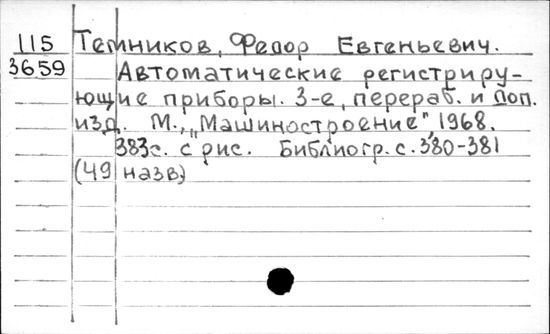 115 Темников, Федор Евгеньевич.
3659 Автоматические регистриру-
ющие приборы. 3-е, перераб. и доп.
изд. М., „Машиностроение", 1968.
383с. с рис. Библиогр. с. 380-381
(49 назв)